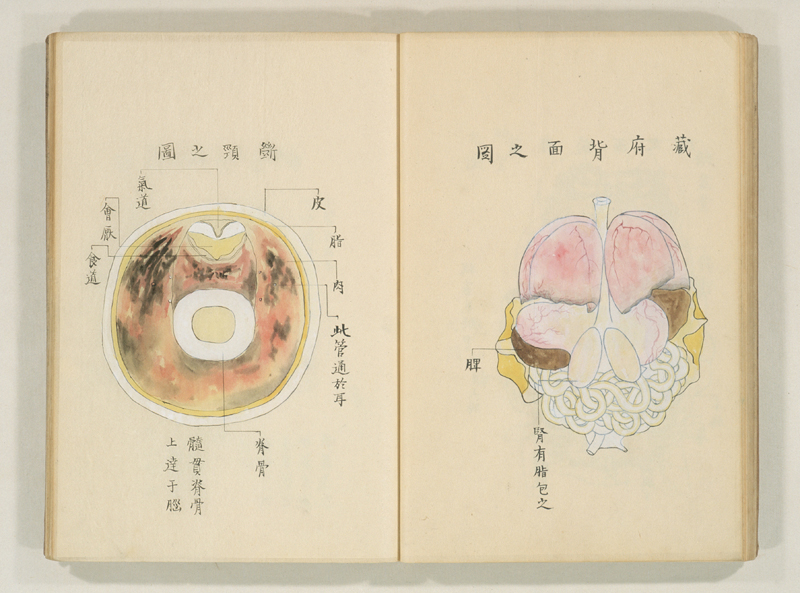 藏府背面之圖
脾
腎有脂包之
斷頸之圖
皮
脂
肉
此管通於耳
氣道
會厭
食道
脊骨
髓貫脊骨
上達于腦